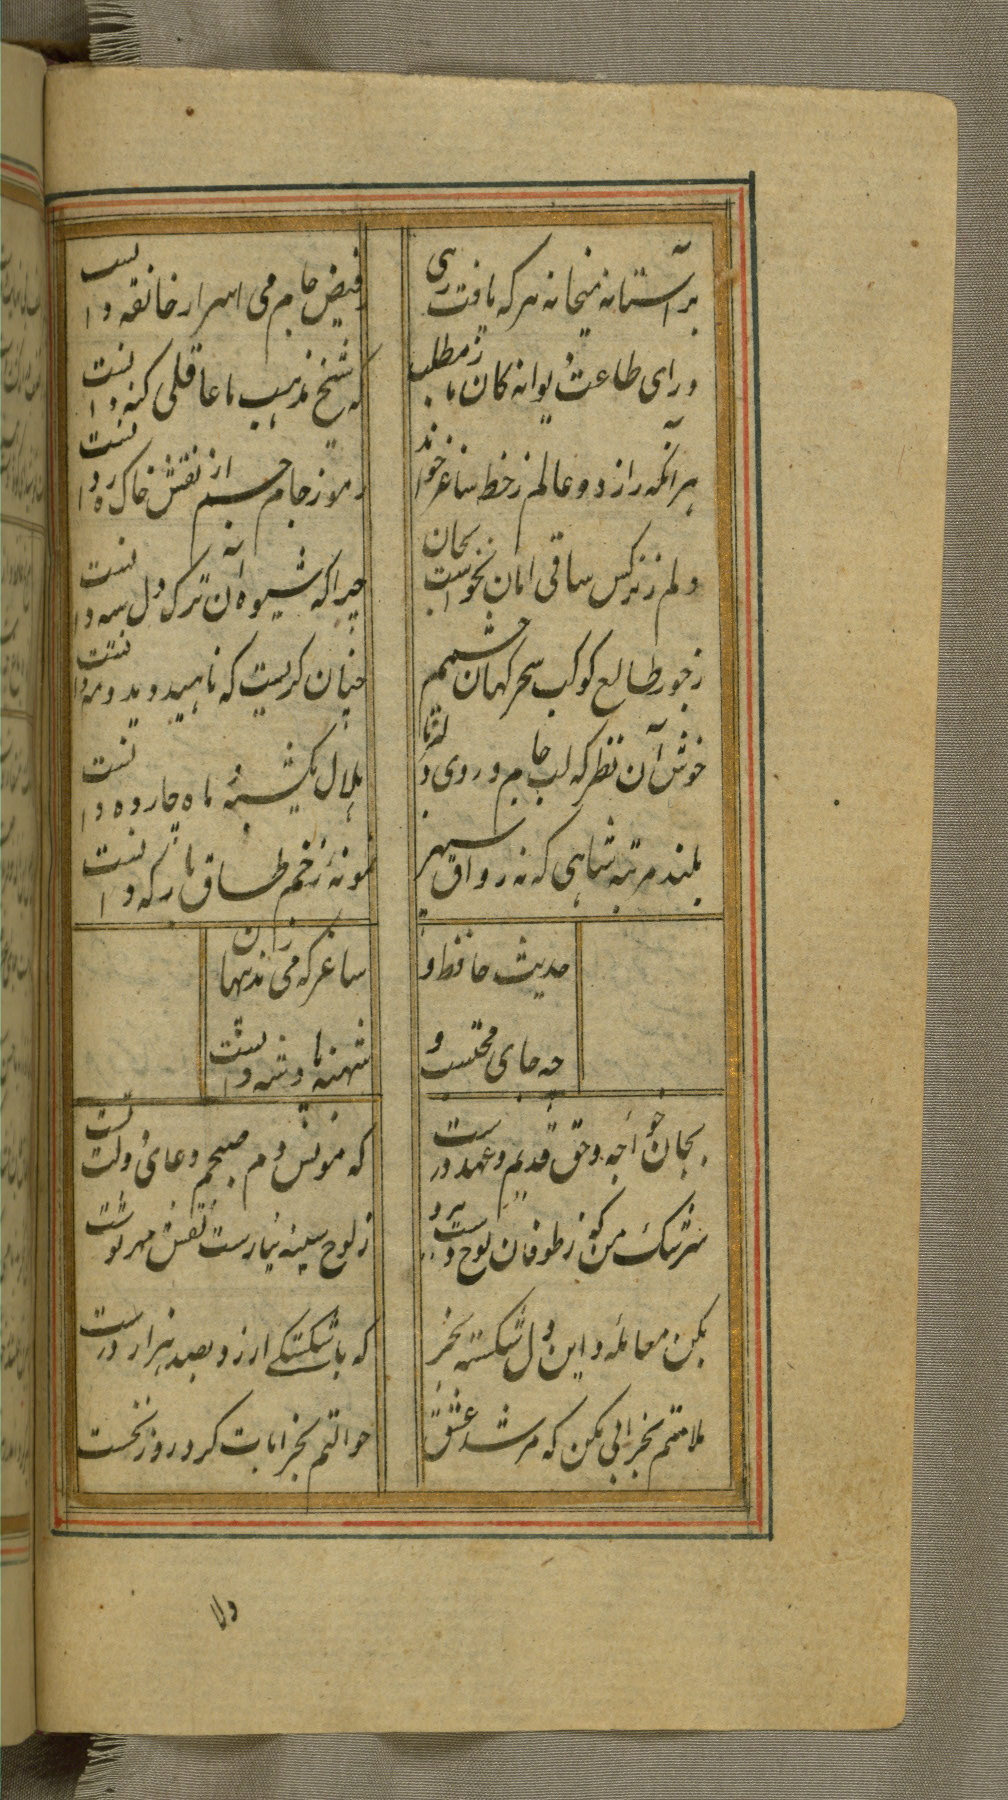 بر آستانه میخانه هر که یافت رهی
ز فیض جام می اسرار خانقه دانست
ورای طاعت دیوانه کان ز ما مطلب
که شیخ مذهب ما عاقلی کنه دانست
هر آنکه راز دو عالم ز خط ساغر خواند
رموز جام جم از نقش خاک ره دانست
دلم ز نرکس ساقی امان نخواست بجان
چرا که شیوه آن ترک دل سیه دانست
ز جور طالع کوکب سحر کهان چشمم
چنان کریست که ناهید دید و مه دانست
خوش آن نظر که لب جام و روی دلبر
هلال یکشبه ماه چارده دانست
بلند مرتبه شاهی که نه رواق سپهر
نمونه ز خم طاق بارکه دانست
حدیث حافظ و
ساغر که می زند پنهان
چه جای محتسب و
شحنه پادشه دانست
بجان خواجه و حق قدیم و عهد درست
که مونس دم صبحم دعای دولت تست
سرشک من که ز طوفان نوح دست برد
ز لوح سینه نیارست نقش مهر تو شست
بکن معامله و این دل شکسته بخر
که با شکستکی ارزد بصد هزار درست
ملامتم بخرابی مکن که مرشد عشق
حوالتم بخرابات کرد روز نخست
دلا